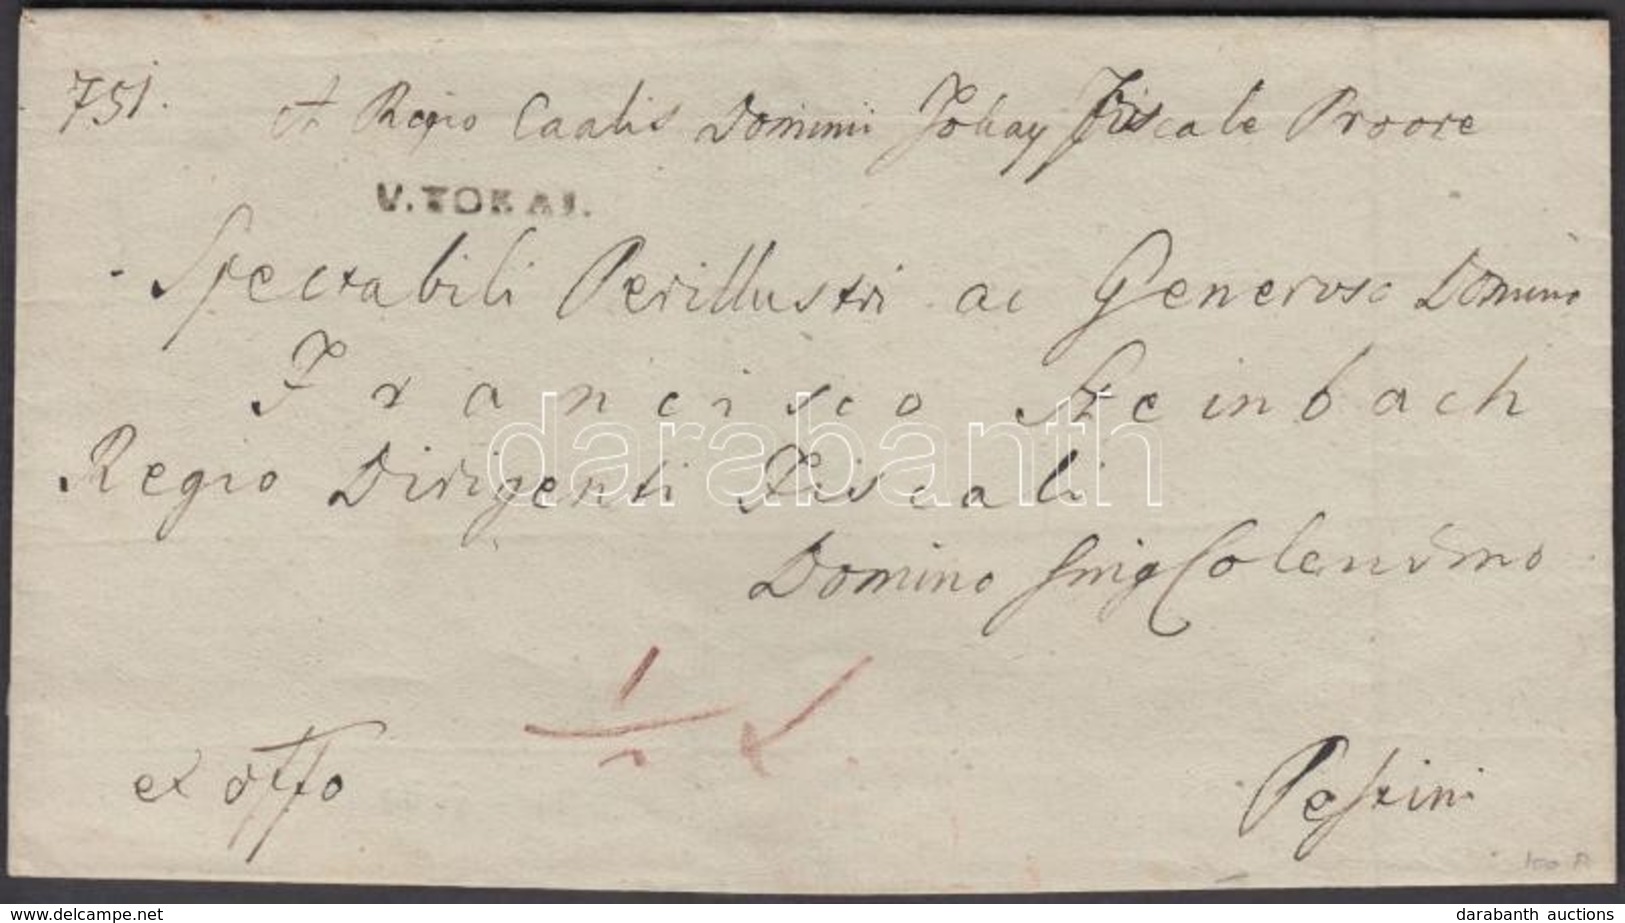 751. A Regio Caalis Dominii Tokay Fiscale Proore
V.TOKAI.
Spectabili Perillustri ac Generoso Domino
Francisco Steinbach
Regio Dirigenti Fiscali
Domino Colendsmo
ex offo
Pestini
100 A
darabanth
www.delcampe.net
darabanth auctions